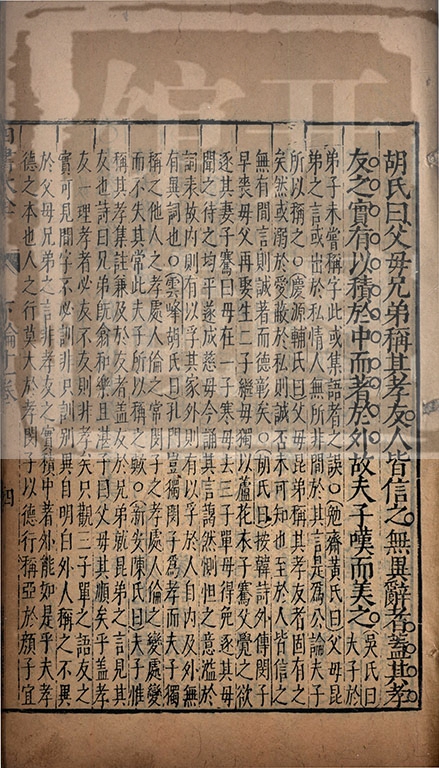 胡氏曰父母兄弟稱其孝友人皆信之無異辭者蓋其孝
友之實有以積於中而著於外故夫子嘆而美之
吳氏曰
夫子於
弟子未嘗稱字此或集語者之誤○勉齋黃氏曰父母昆
弟之言或出於私情人無所非間於其言是爲公論夫子
所以稱之○慶源輔氏曰父母昆弟稱其孝友者固有之
矣然或溺於愛蔽於私則誠否未可知也至於人皆信之
無有間言則誠著而德彰矣○胡氏曰按韓詩外傳閔子
早喪母父再娶生二子繼母獨以蘆花衣子騫父覺之欲
逐其妻子騫曰母在一子寒母去三子單母得免逐其母
聞之待之均平遂成慈母今誦其言藹然惻怛之意溢於
詞表故內則有以孚其家外則有以孚於人自內及外無
有異詞也○雲峰胡氏曰孔門豈獨閔子爲孝而夫子獨
稱之他人之孝處人倫之常閔子之孝處人倫之變處變
而不失其常此夫子所以稱之歟○新安陳氏曰夫子惟
稱其孝集註兼及於友者盖友於兄弟就昆弟之言見其
友也詩曰兄弟旣翕和樂且湛子曰父母其順矣乎盖孝
友一理孝者必友不友則非孝矣只觀三子單之語友之
實可見間字不必訓非只訓別異自明白外人稱之不異
於父母兄弟之言非孝友之實積中著外能如是乎夫孝
德之本也人之行莫大於孝閔子以德行稱亞於顔子宜
四